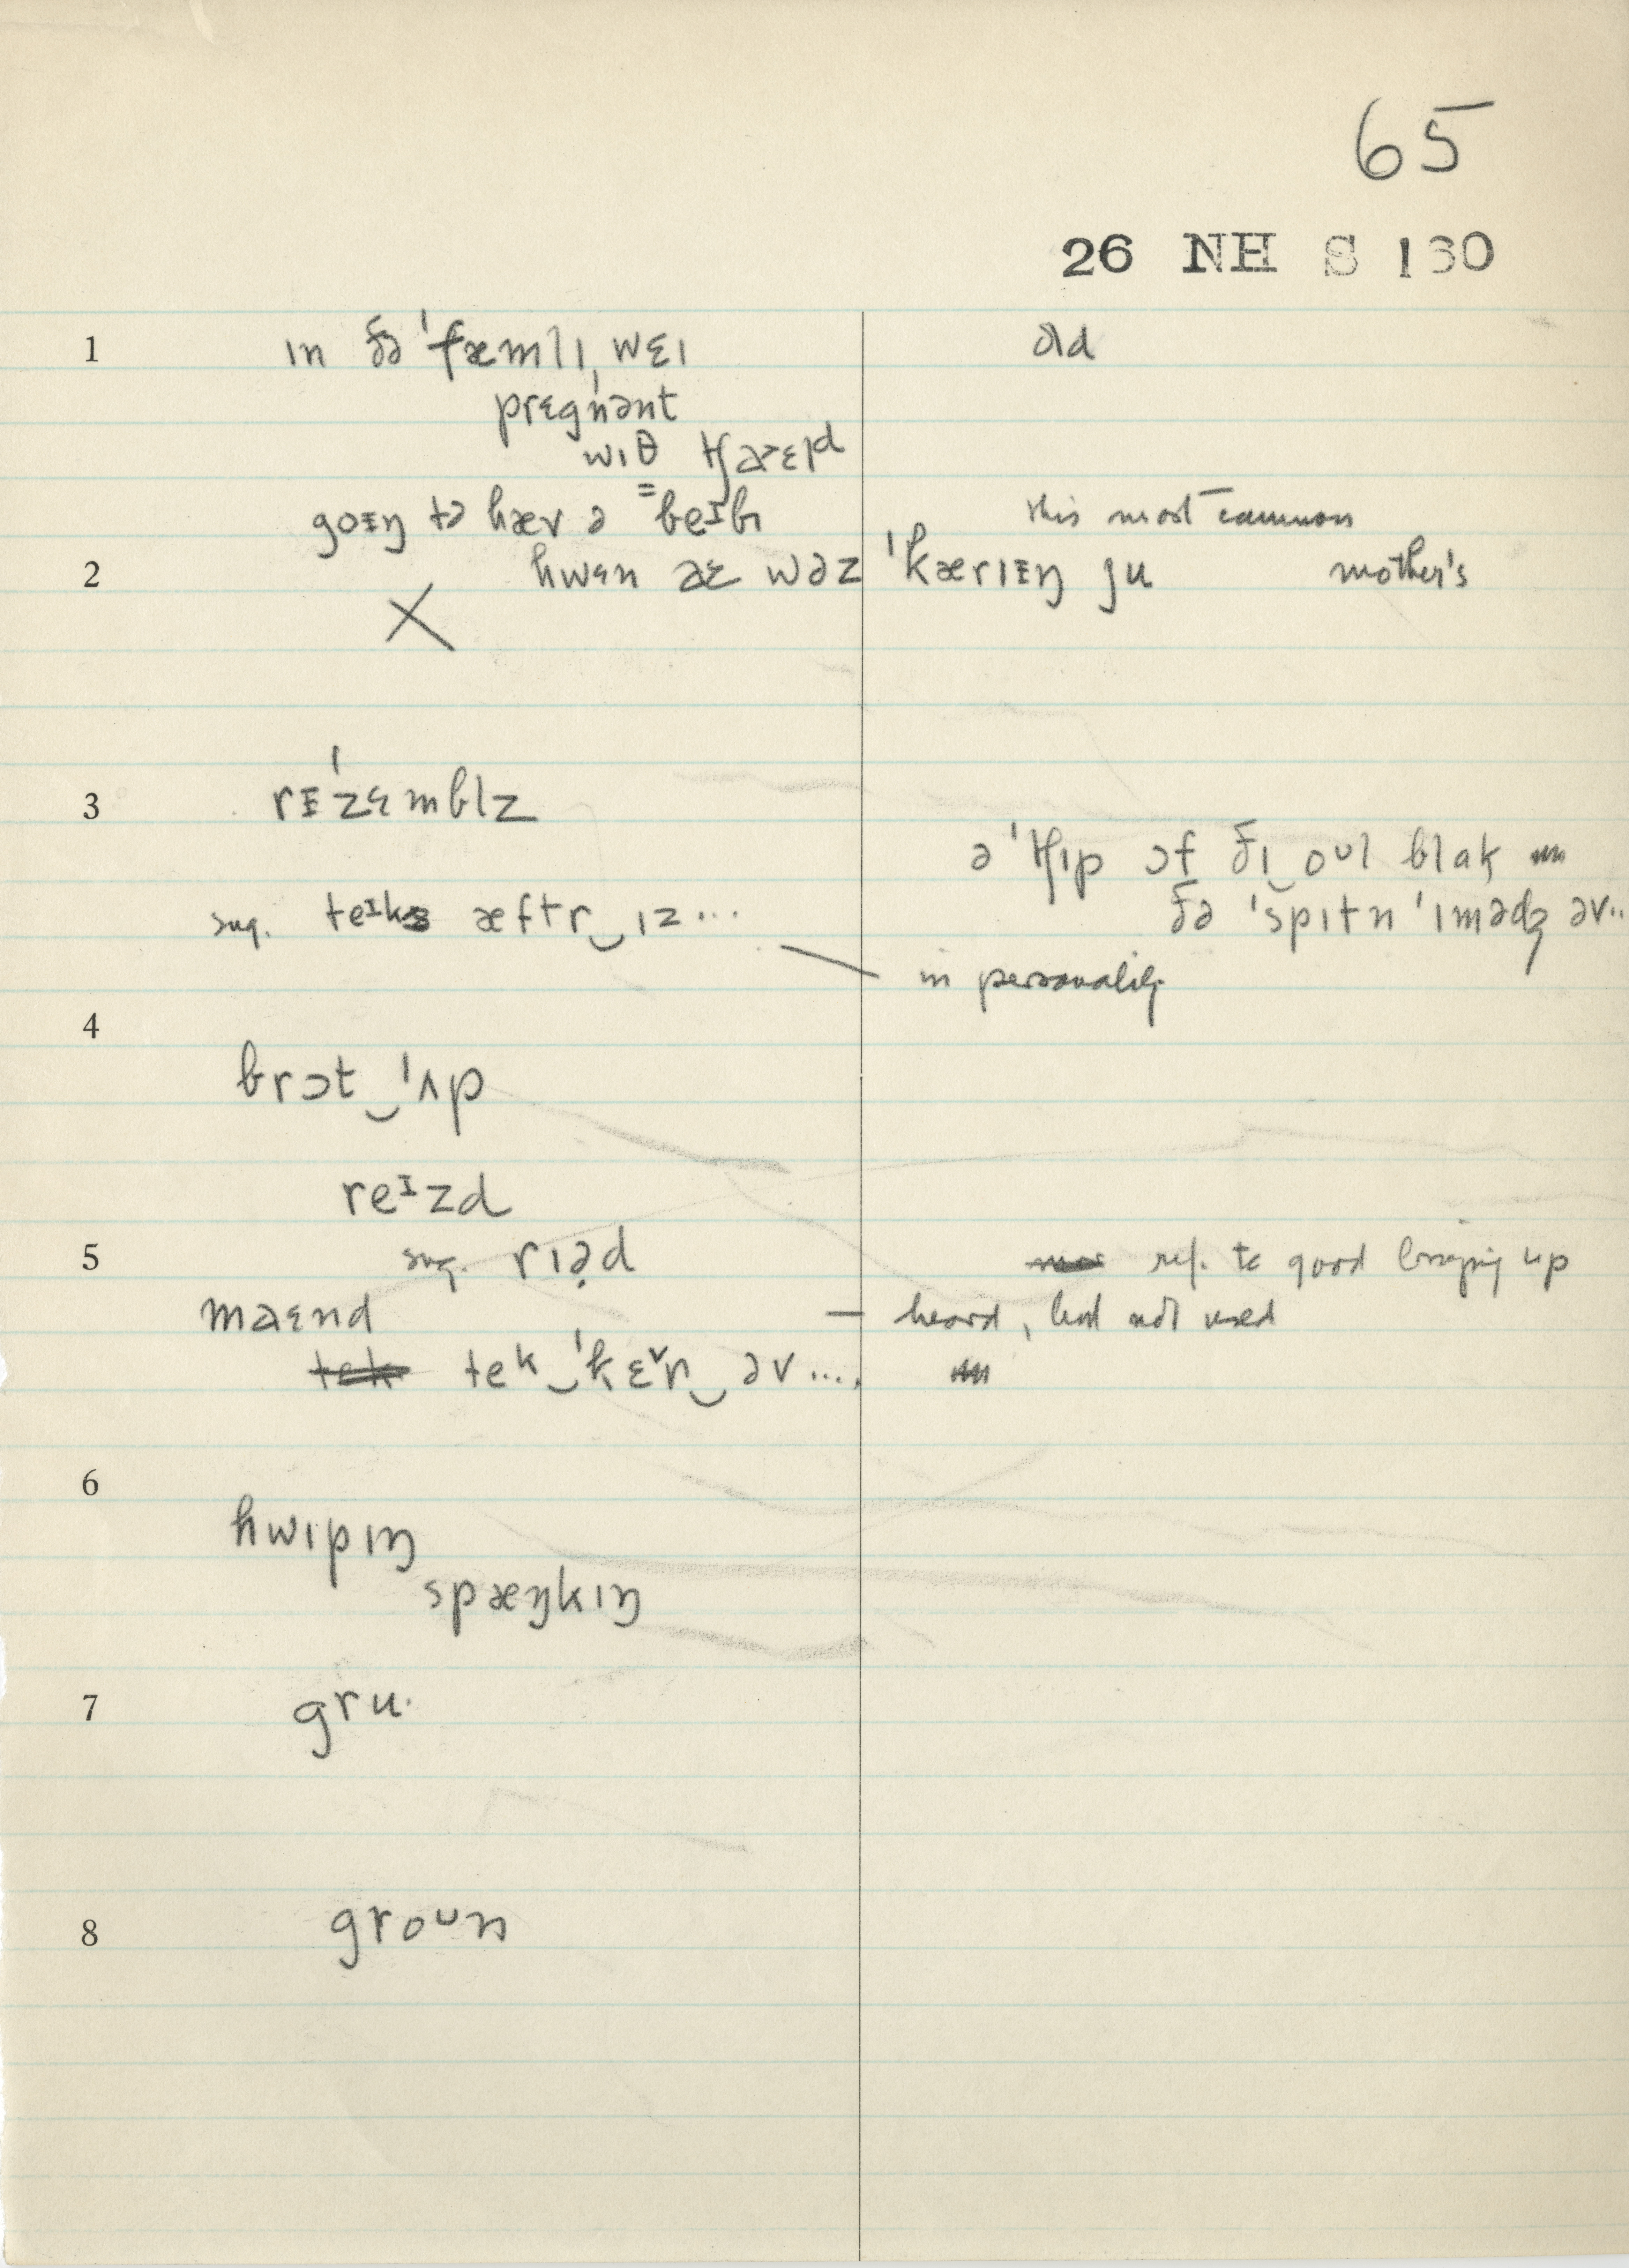 65
26 NH S 130
1 ɪn ðə ˈfæmlɪˌwɛɪ old
ˈprɛgnənt
wɪθ tʃaɛɛld
goɪŋ tə hæv ə ⁼beᴵbɪ this most common
2 hwɛn aɛ wəz ˈkærɪɪŋ ju mother's
X
3 rɪˈzɛmblz
ə ˈtʃɪp ɔf ðɪ‿oᴜl blɑk
ðə ˈspɪtn ˈɪmədʒ əv..
sug. teᴵks æftr‿ɪz...
in personality
4
brɔt‿ˈʌp
reᴵzd
5 sug. rɪə̣d ref. to good bringing up
maɛnd — heard, but not used
tek‿ˈkɛ˅r‿əv....
6
hwɪpɪŋ
spæŋkɪŋ
7 gru·
8 groᴜn